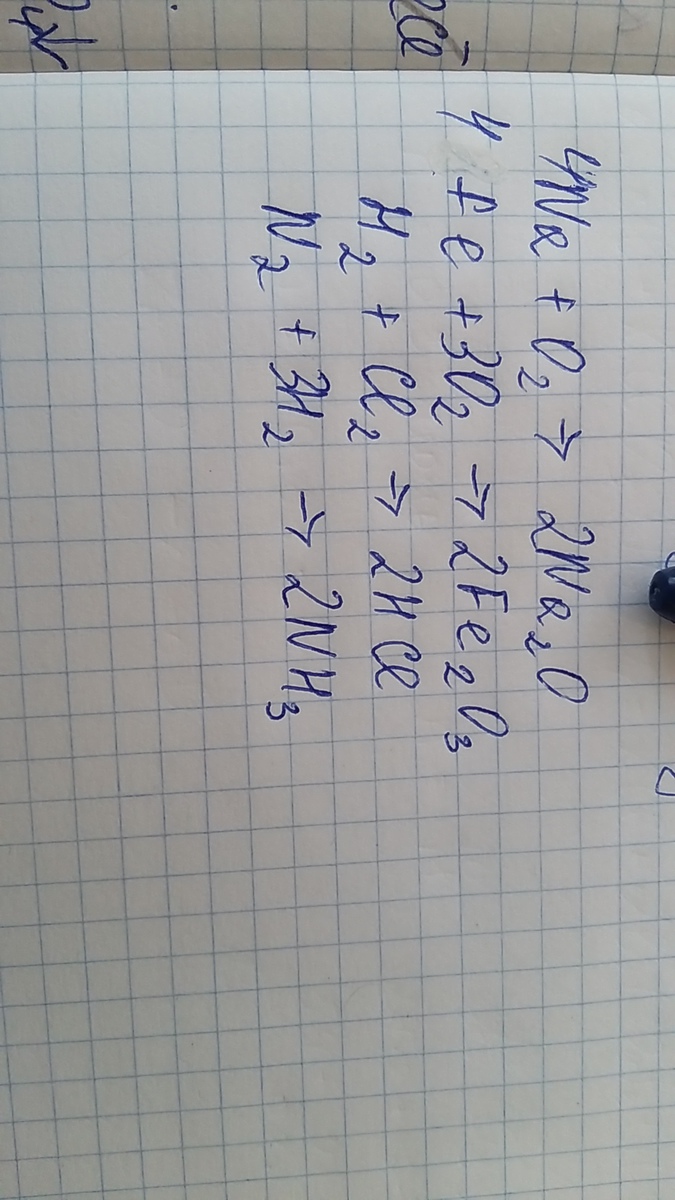 4Na + O₂ → 2Na₂O
4 Fe + 3O₂ → 2Fe₂O₃
H₂ + Cl₂ → 2HCl
N₂ + 3H₂ → 2NH₃